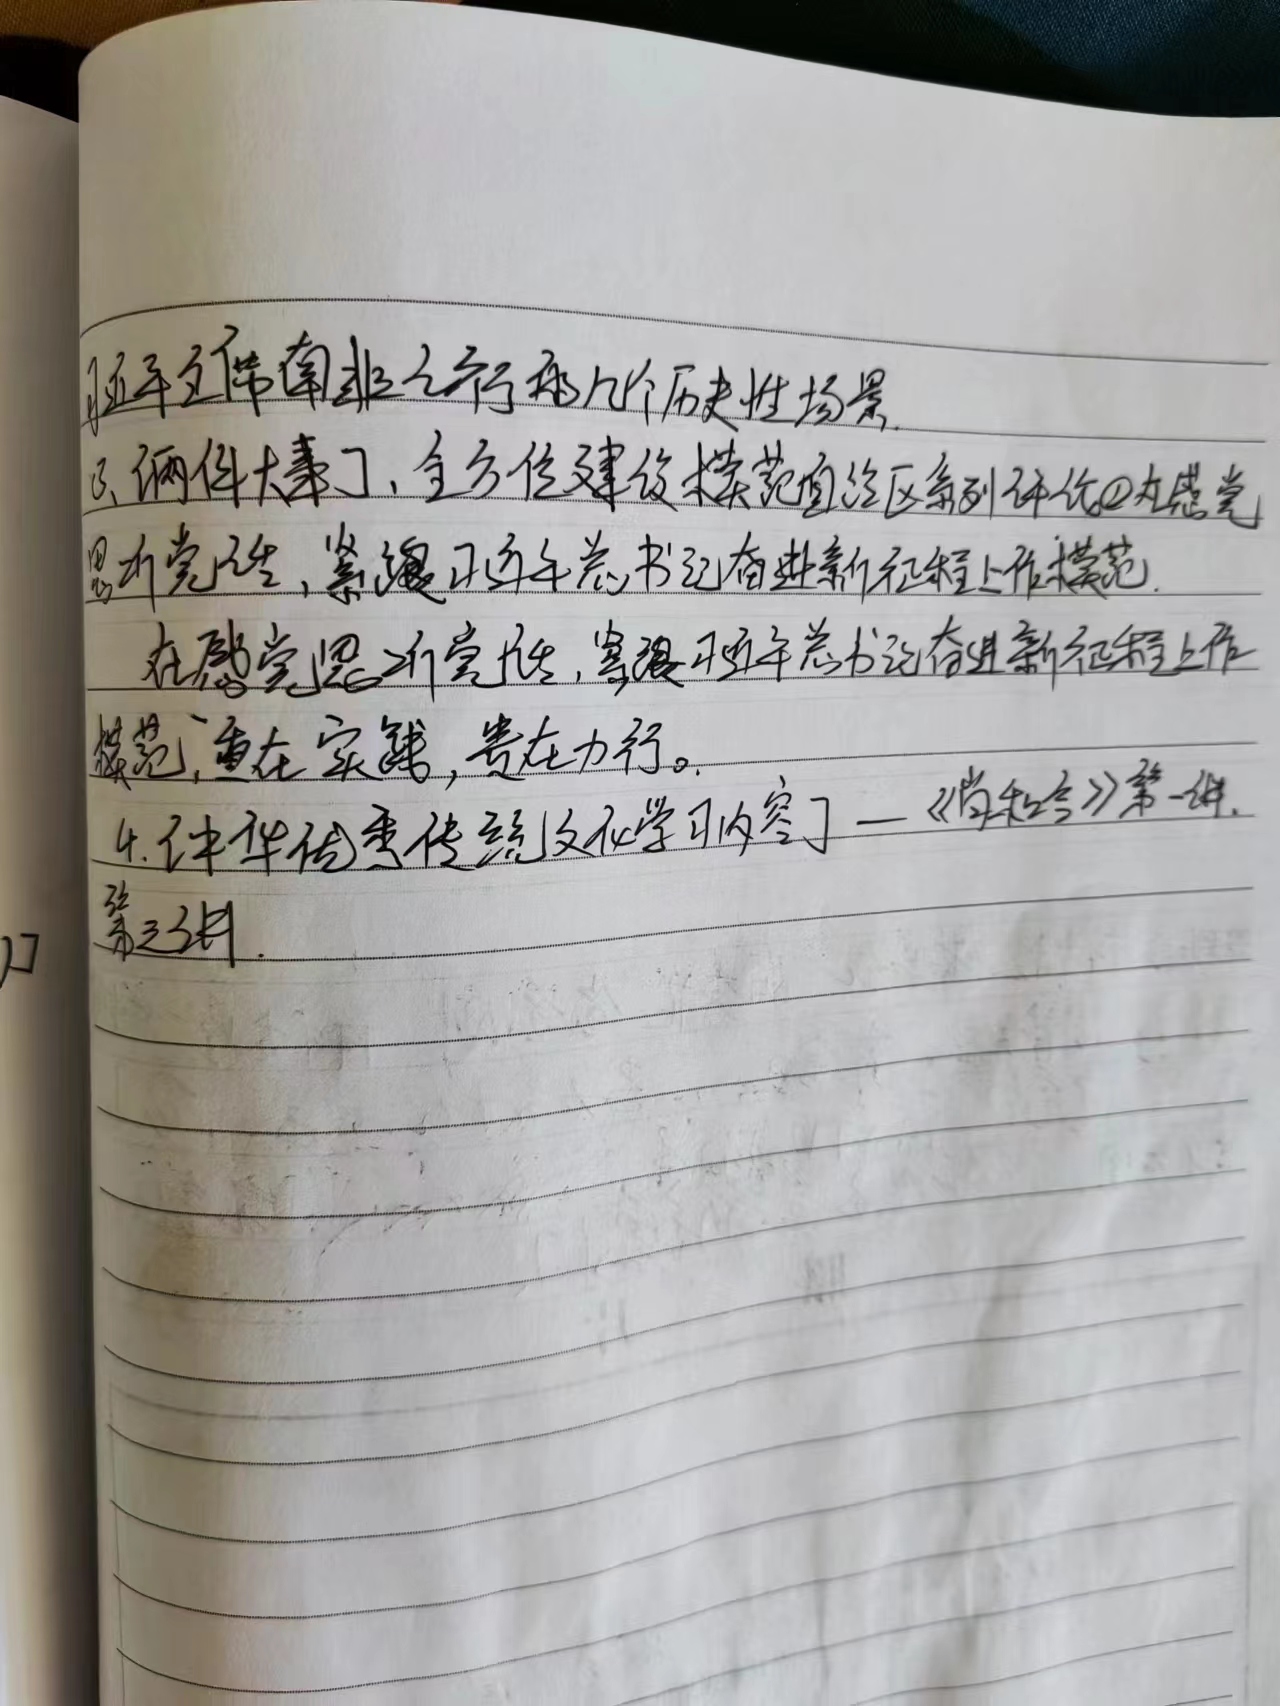 习近平主席南非之行那几个历史性场景.
3、俩件大事了、全方位建设模范自治区系列评论②在感党
恩听党话,紧跟习近平总书记奋进新征程上作模范.
在感党恩听党话,紧跟习近平总书记奋进新征程上作
模范,重在实践,贵在力行。
4.中华优秀传统文化学习内容了—《尚和合》第一讲.
第二讲.